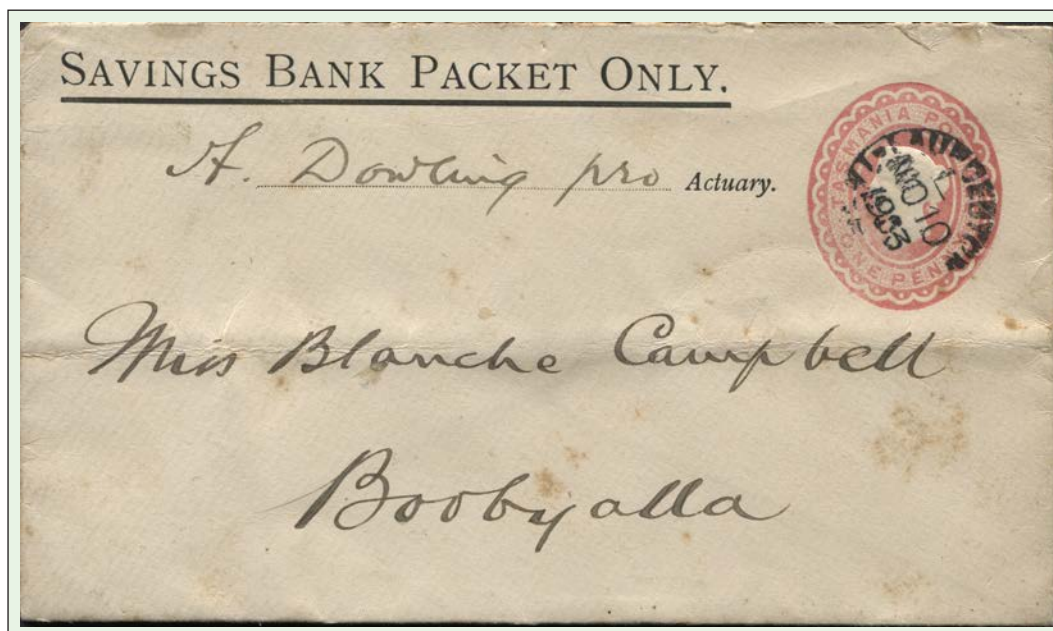 SAVINGS BANK PACKET ONLY.
A. Dowling pro Actuary.
TASMANIA
ONE PENNY
LAUNCESTON
10
1903
Miss Blanche Campbell
Boobyalla